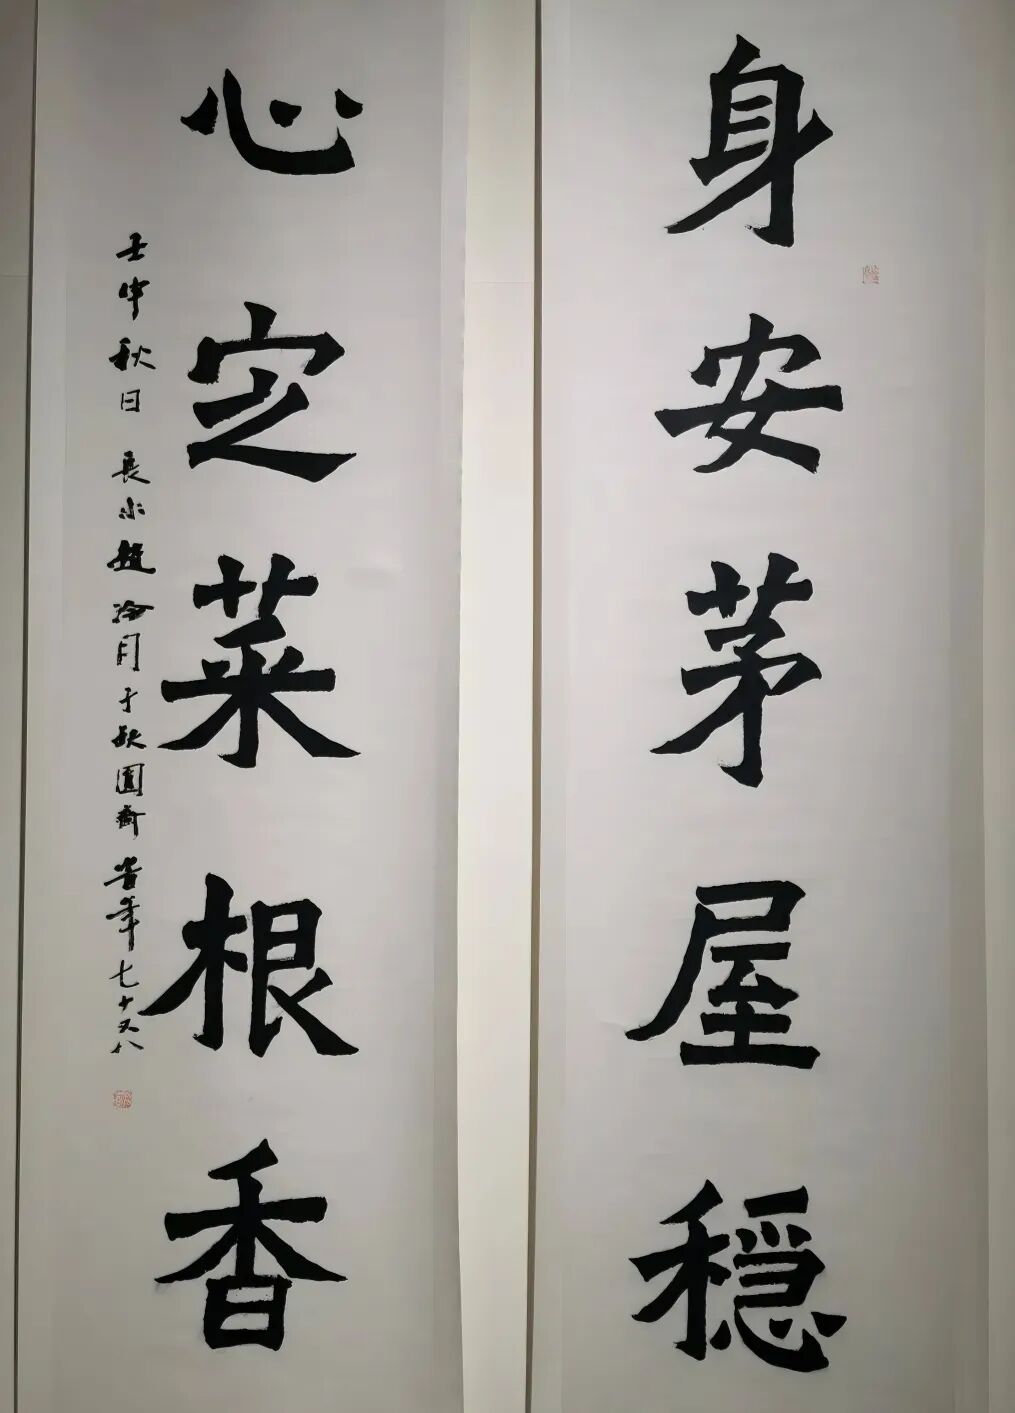 身安茅屋穩
心定菜根香
壬申秋日 長水趙冷月于缺圓齋 省年七十又八